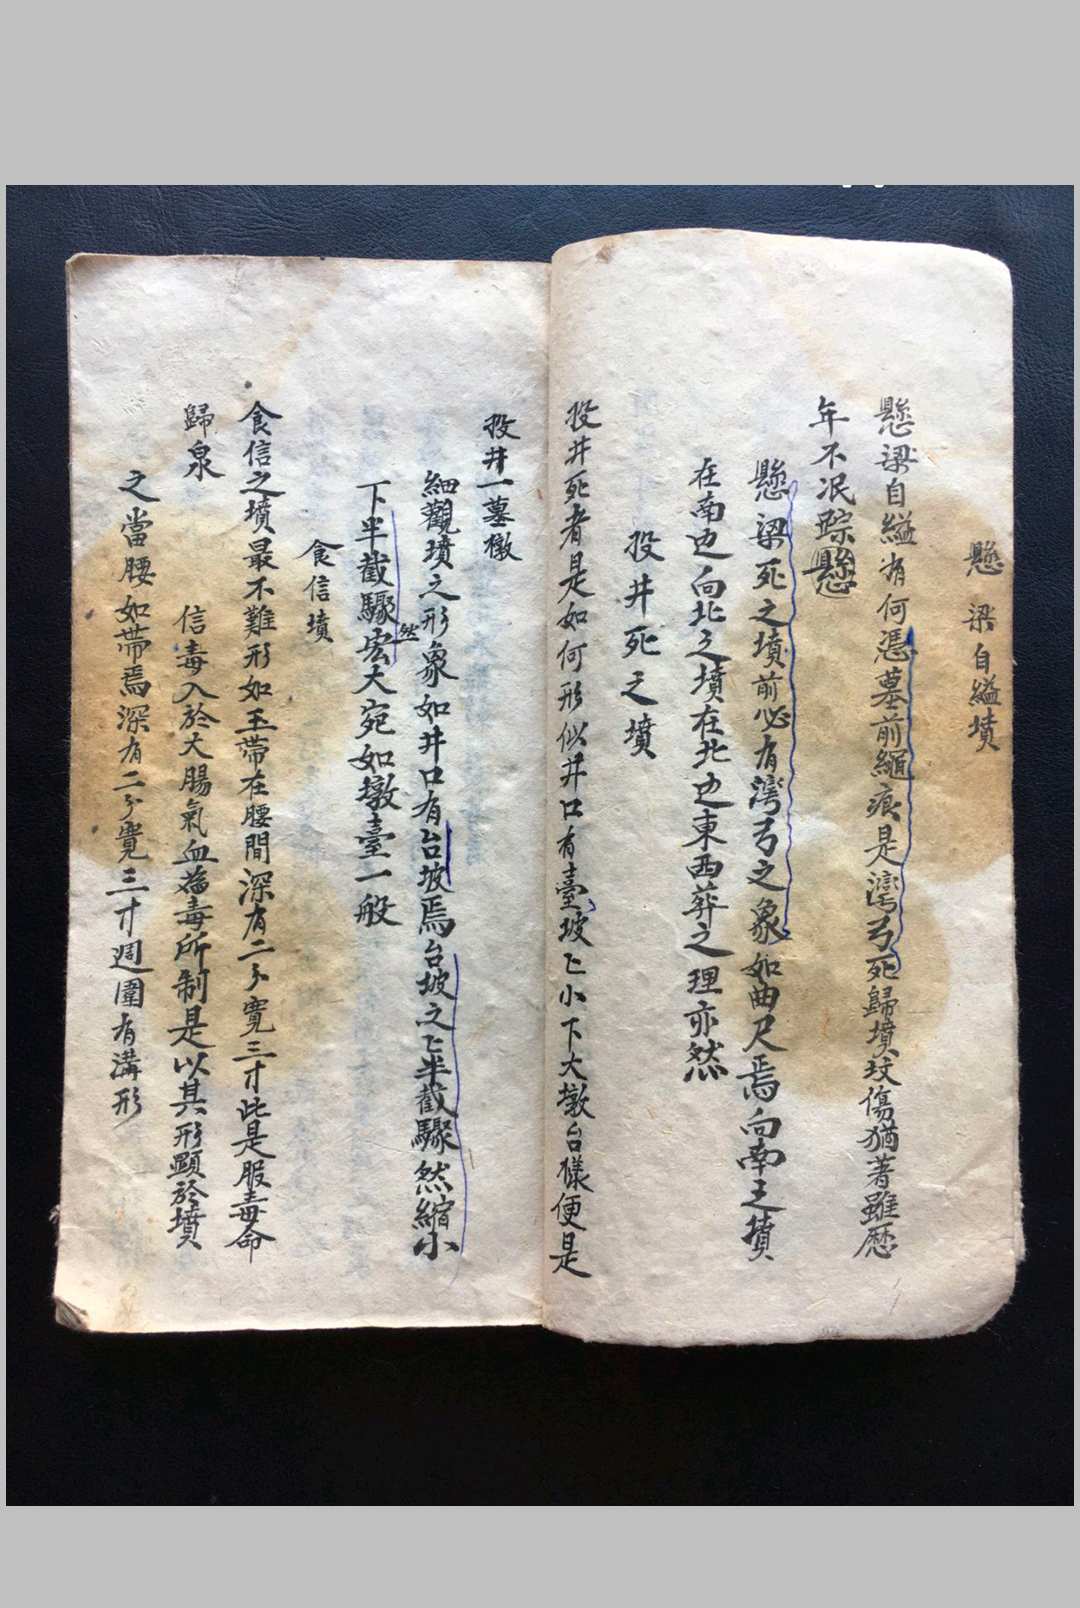 懸梁自縊墳
懸梁自縊有何憑墓前繩痕是灣弓死歸墳坟傷猶著雖歷
年不泯踪懸
懸梁死之墳前必有灣弓之象如曲尺焉向南之墳
在南也向北之墳在北也東西葬之理亦然
投井死之墳
投井死者是如何形似井口有臺坡上小下大墩台樣便是
投井一墓墩
細觀墳之形象如井口有台坡焉台坡之上半截驟然縮小
下半截驟然宏大宛如墩臺一般
食信墳
食信之墳最不難形如玉帶在腰間深有二分寬三寸此是服毒命
歸泉
信毒入於大腸氣血為毒所制是以其形顯於墳
之當腰如帶焉深有二分寬三寸週圍有溝形